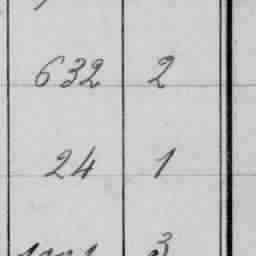 632 2
24 1
3